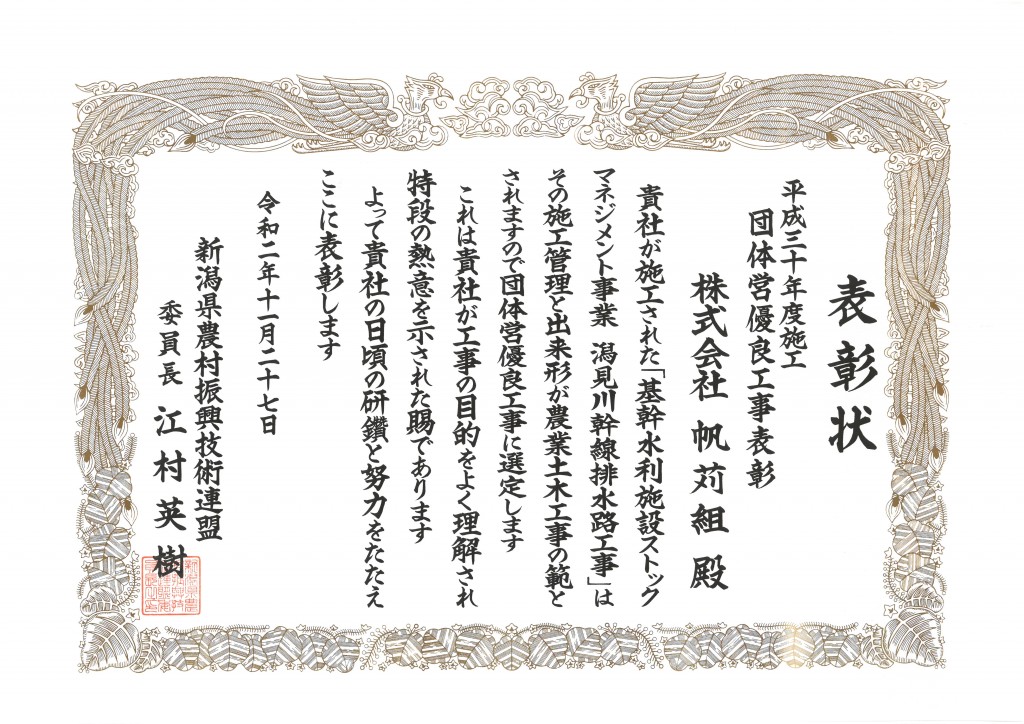 表彰状
平成三十年度施工
団体営優良工事表彰
株式会社 帆苅組 殿
貴社が施工された「基幹水利施設ストック
マネジメント事業 潟見川幹線排水路工事」は
その施工管理と出来形が農業土木工事の範と
されますので団体営優良工事に選定します
これは貴社が工事の目的をよく理解され
特段の熱意を示された賜であります
よって貴社の日頃の研鑽と努力をたたえ
ここに表彰します
令和二年十一月二十七日
新潟県農村振興技術連盟
委員長 江村英樹